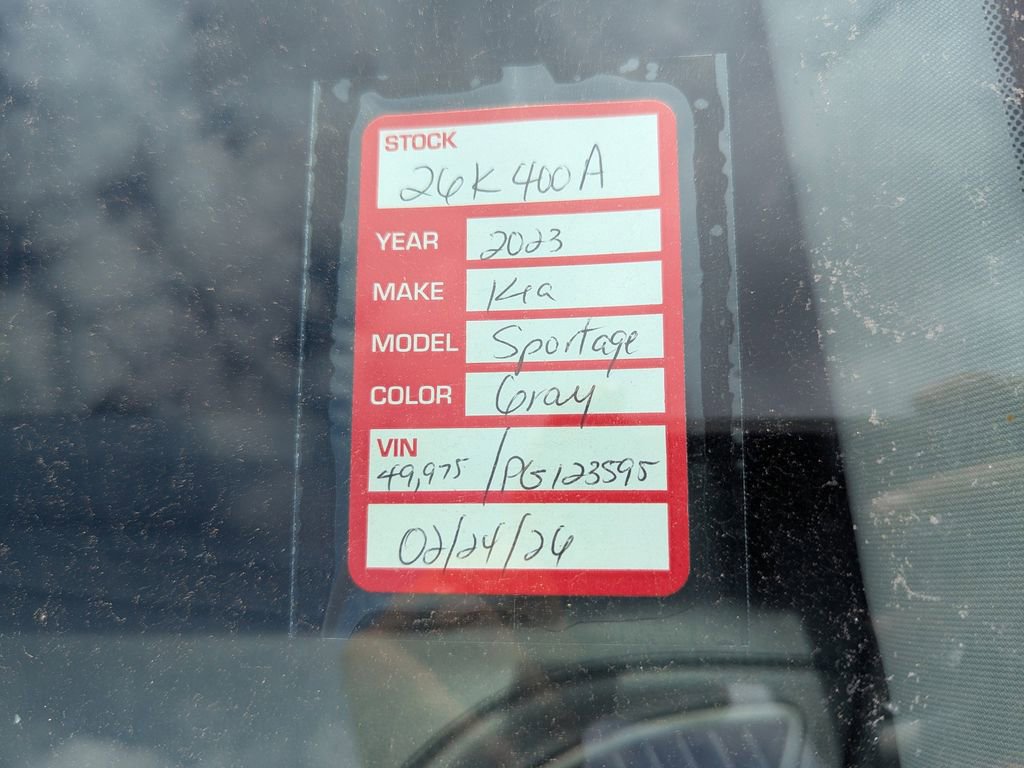 STOCK
26K400A
YEAR 2023
MAKE Kia
MODEL Sportage
COLOR Gray
VIN
49,975 / PG123595
02/24/26